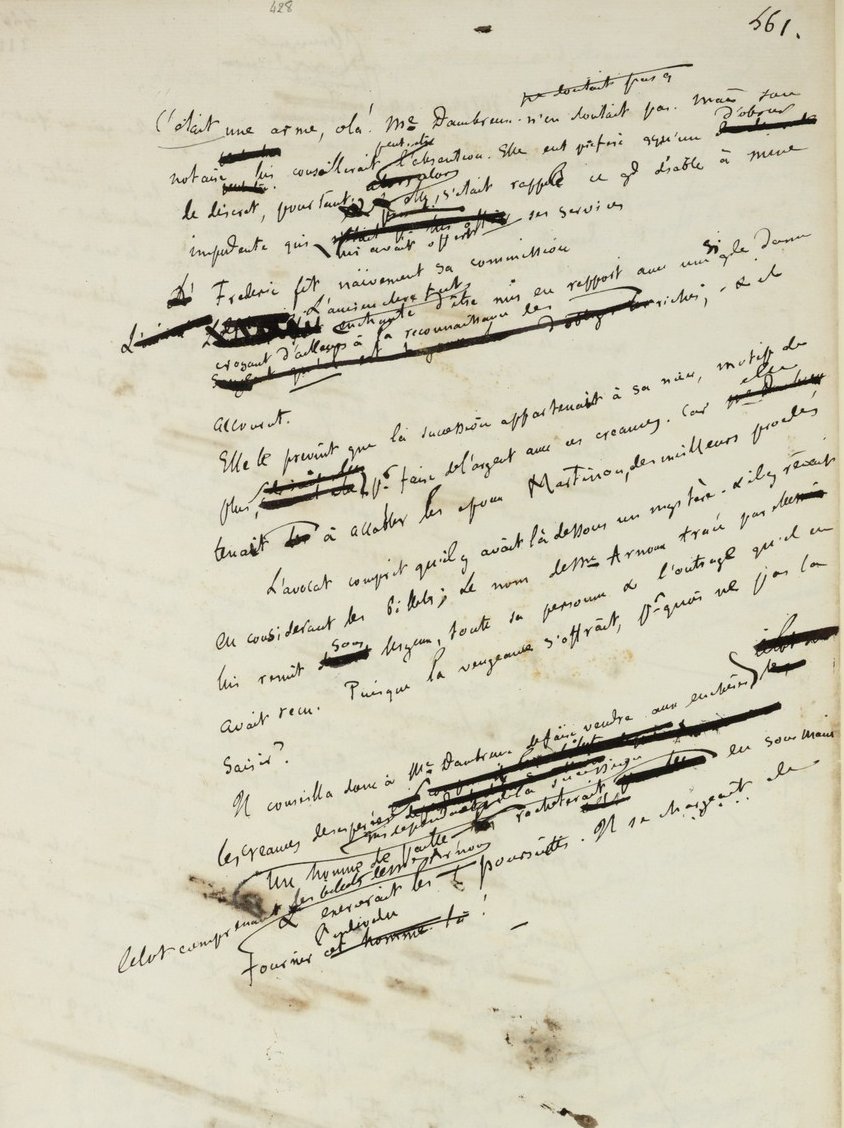 428
561.
ne doutait pas q
C'était une arme, cela! Me Dambreuse n'en doutait pas. mais son
notaire lui conseillerait peut-être l'abstention. Elle eut préféré quelqu'un d'obscur
de discret, pourtant, s'était rappelé ce gd diable à mine
impudente qui lui avait offert ses services
Frederic fit naïvement sa commission
L'ancien clerc fut
enchanté d'être mis en rapport avec une si gde Dame
croyant d'ailleurs à la reconnaissance des riches, & il
accourut.
Elle le prévint que la succession appartenait à sa nièce, motif de
plus, pr faire de l'argent avec ces creances. Car elle
tenait à accabler les epoux Martinon, des meilleurs procédés
L'avocat comprit qu'il y avait là dessous un mystère. & il y rêvait
en considerant les billets; Le nom de Me Arnoux tracé par
lui remit sous les yeux, toute sa personne & l'outrage qu'il en
avait reçu. Puisque la vengeance s'offrait, prquoi ne pas la
saisir?
Il conseilla donc à Me Dambreuse de faire vendre aux enchères les
les creances desesperées qui dependaient de la succession
Un homme de paille rachèterait en sous main
le lot comprenant les billets de Me Arnoux
& exercerait les poursuites. Il se chargeait de
l'individu
fournir cet homme là!